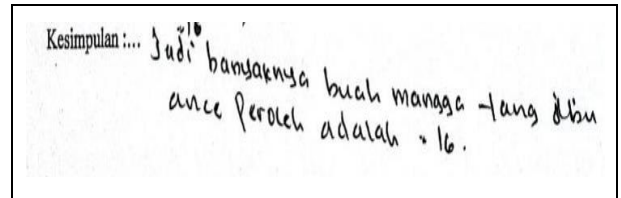 Kesimpulan :... Jadi banyaknya buah mangga yang ibu
ance Peroleh adalah = 16.